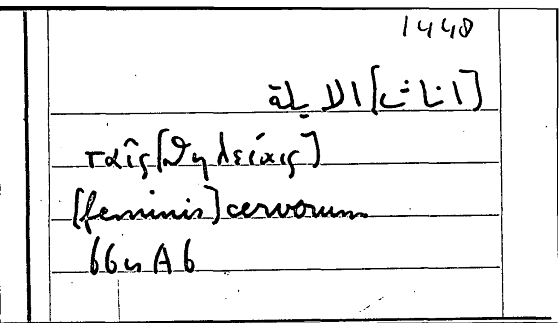 1448
[اناث] الايلة
ταῖς [θηλείαις]
[feminis] cervorum